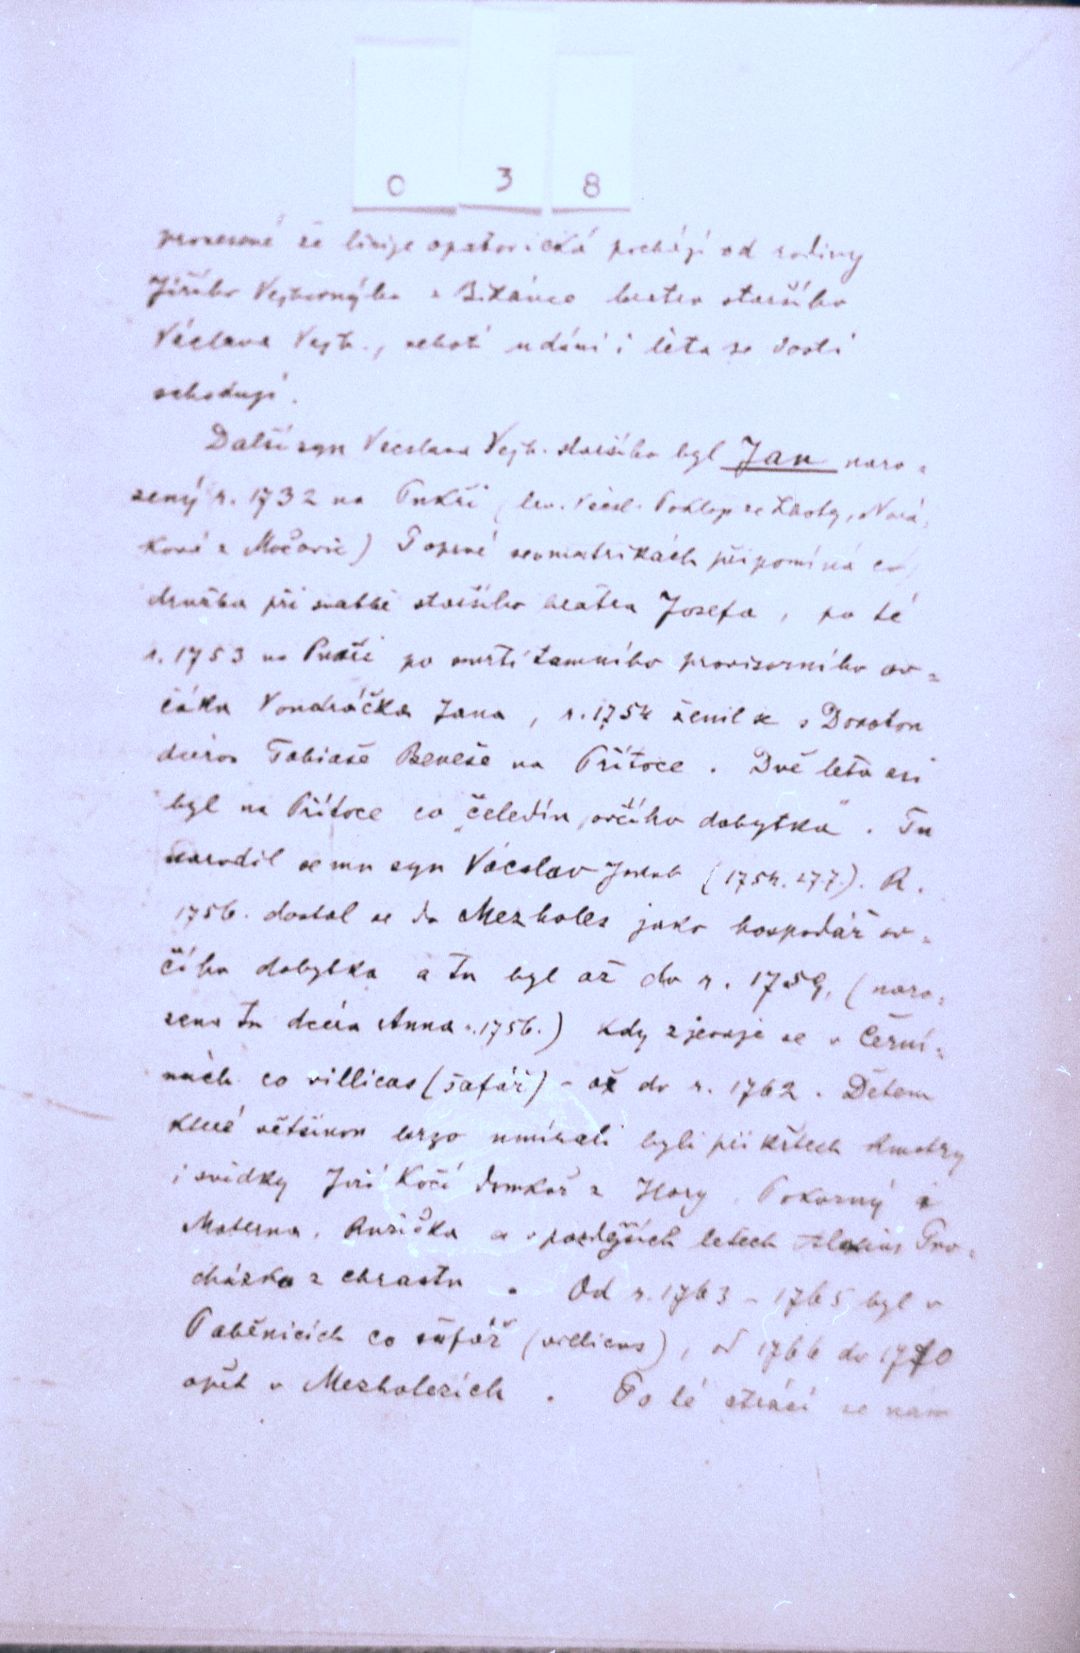 0 3 8
že linije opatovická pochází od rodiny
Jiřího Vejborného z Bikánce bratra staršího
Václava Vejb., neboť udání i léta se dosti
schodují.
Další syn Václava Vejb. staršího byl Jan naro-
zený r. 1732 na (kv. Václ. Poklop ze Lhoty, Nová-
ková z Močovic) Poprvé v matrikách připomíná co
družba při svatbě staršího bratra Josefa, po té
r. 1753 na po smrti tamního provisorního ov-
čáka Vondráčka Jana, r. 1754 ženil se s Dorotou
dcerou Tobiáše Beneše na Přítoce. Dvě léta asi
byl na Přítoce co „čeledín ovčího dobytka“. Tu
narodil se mu syn Václav Jakub (1754. 27.7.). R.
1756. dostal se do Mezholes jako hospodář ov-
čího dobytka a tu byl až do r. 1759, (naro-
zena tu dcera Anna r. 1756.) kdy zjevuje se v Černí-
nách co villicus (šafář) - až do r. 1762. Dětem
které většinou brzo umírali byli při křtech kmotry
i svědky Jiří Kočí domkář z Hory, Pokorný
Materna, Ružička a v pozdějších letech Pro-
cházka z Chrastu. Od r. 1763 - 1765 byl v
Paběnicích co šafář (villicus), od 1766 do 1770
opět v Mezholezích. Po té ztrácí se nám